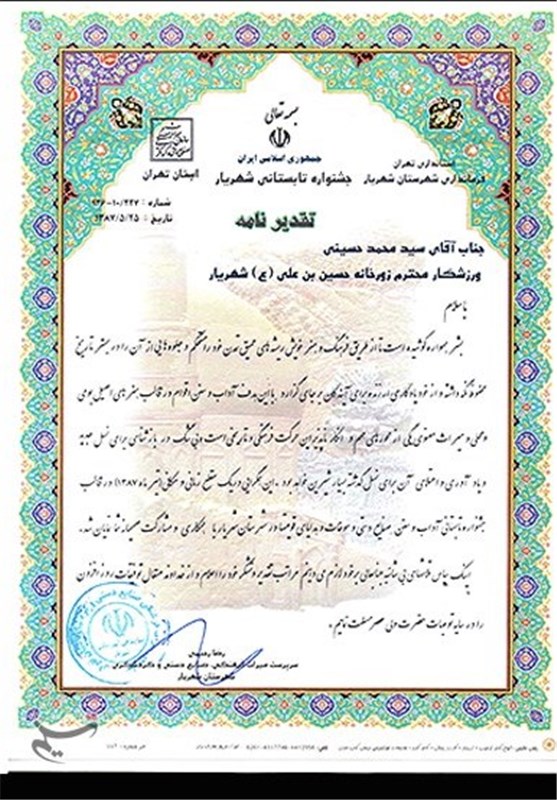 بسمه تعالی
جمهوری اسلامی ایران
استانداری تهران
فرمانداری شهرستان شهریار
جشنواره تابستانی شهریار
استان تهران
شماره : ۹۳۶-۱۰/۲۲۷
تاریخ : ۱۳۸۷/۵/۲۵
تقدیر نامه
جناب آقای سید محمد حسینی
ورزشکار محترم زورخانه حسین بن علی (ع) شهریار
با سلام
بشر همواره کوشیده است تا از طریق فرهنگ و هنر خویش ریشه های عمیق تمدن خود را مستحکم و جلوه هایی از آن را در بستر تاریخ
محفوظ نگه داشته و از خود یادگاری ارزنده برای آیندگان بر جای گذارد با این هدف آداب و سنن اقوام در قالب هنرهای اصیل بومی
و محلی و میراث معنوی یکی از محورهای مهم و انکار ناپذیر این حرکت فرهنگی و تاریخی است و بی شک در بازشناسی برای نسل جدید
و یاد آوری و اعتلای آن برای نسل گذشته بسیار شیرین خواهد بود . این همگرایی در یک مقطع زمانی و مکانی (تیر ماه ۱۳۸۷) در قالب
جشنواره تابستانی آداب و سنن صنایع دستی و سوغات و هدایای قومیتها در شهرستان شهریار با همکاری و مشارکت صمیمانه شما پایان شد .
اینک بپاس تلاشهای بی شائبه جنابعالی بر خود لازم می دانم مراتب تقدیر و تشکر خود را اعلام و از خداوند متعال توفیقات روز افزون
را در سایه توجهات حضرت ولی عصر مسئلت نمایم .
رضا
سرپرست میراث فرهنگی، صنایع دستی و گردشگری
شهرستان شهریار